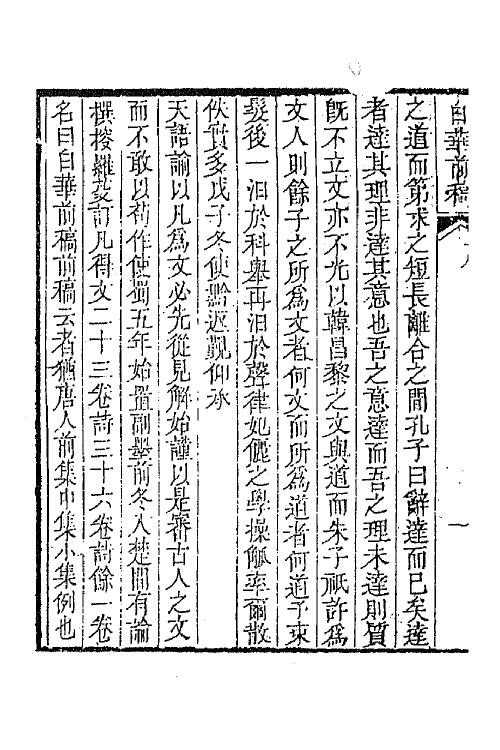 白華前稿
一
之道而第求之短長離合之間孔子曰辭達而已矣達
者達其理非達其意也吾之意達而吾之理未達則質
旣不立文亦不光以韓昌黎之文與道而朱子祇許爲
文人則餘子之所爲文者何文而所爲道者何道予束
髮後一汨於科舉再汨於聲律妃儷之學操觚率爾散
佚實多戊子冬使黔返覲仰承
天語諭以凡爲文必先從見解始謹以是審古人之文
而不敢以苟作使蜀五年始置副墨前冬入楚間有論
撰搜羅芟訂凡得文二十三卷詩三十六卷詩餘一卷
名曰白華前稿前稿云者猶唐人前集中集小集例也